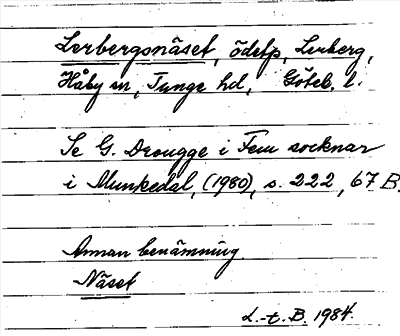 Lerbergsnäset, ödetp, Lerberg,
Håby sn, Tunge hd, Göteb. l.
Se G. Drougge i Fem socknar
i Munkedal, (1980), s. 222, 67 B.
Annan benämning
Näset
L.-t. B. 1984.